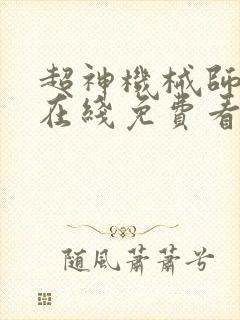 超神機械師
在綫免費看
隨風蕭蕭兮